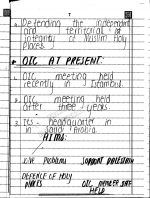 3. Defending the independent
and territorial
integrity of Muslim Holy
Places
* OIC AT PRESENT:
1. OIC meeting held
recently in Istambul.
2. OIC meeting held
after three years.
3. Its headquarter in
in Saudi Arabia.
AIMS:
Problems SUPPORT PALESTINE
DEFENCE OF HOLY
PLACES OIC MEMBER
HELP